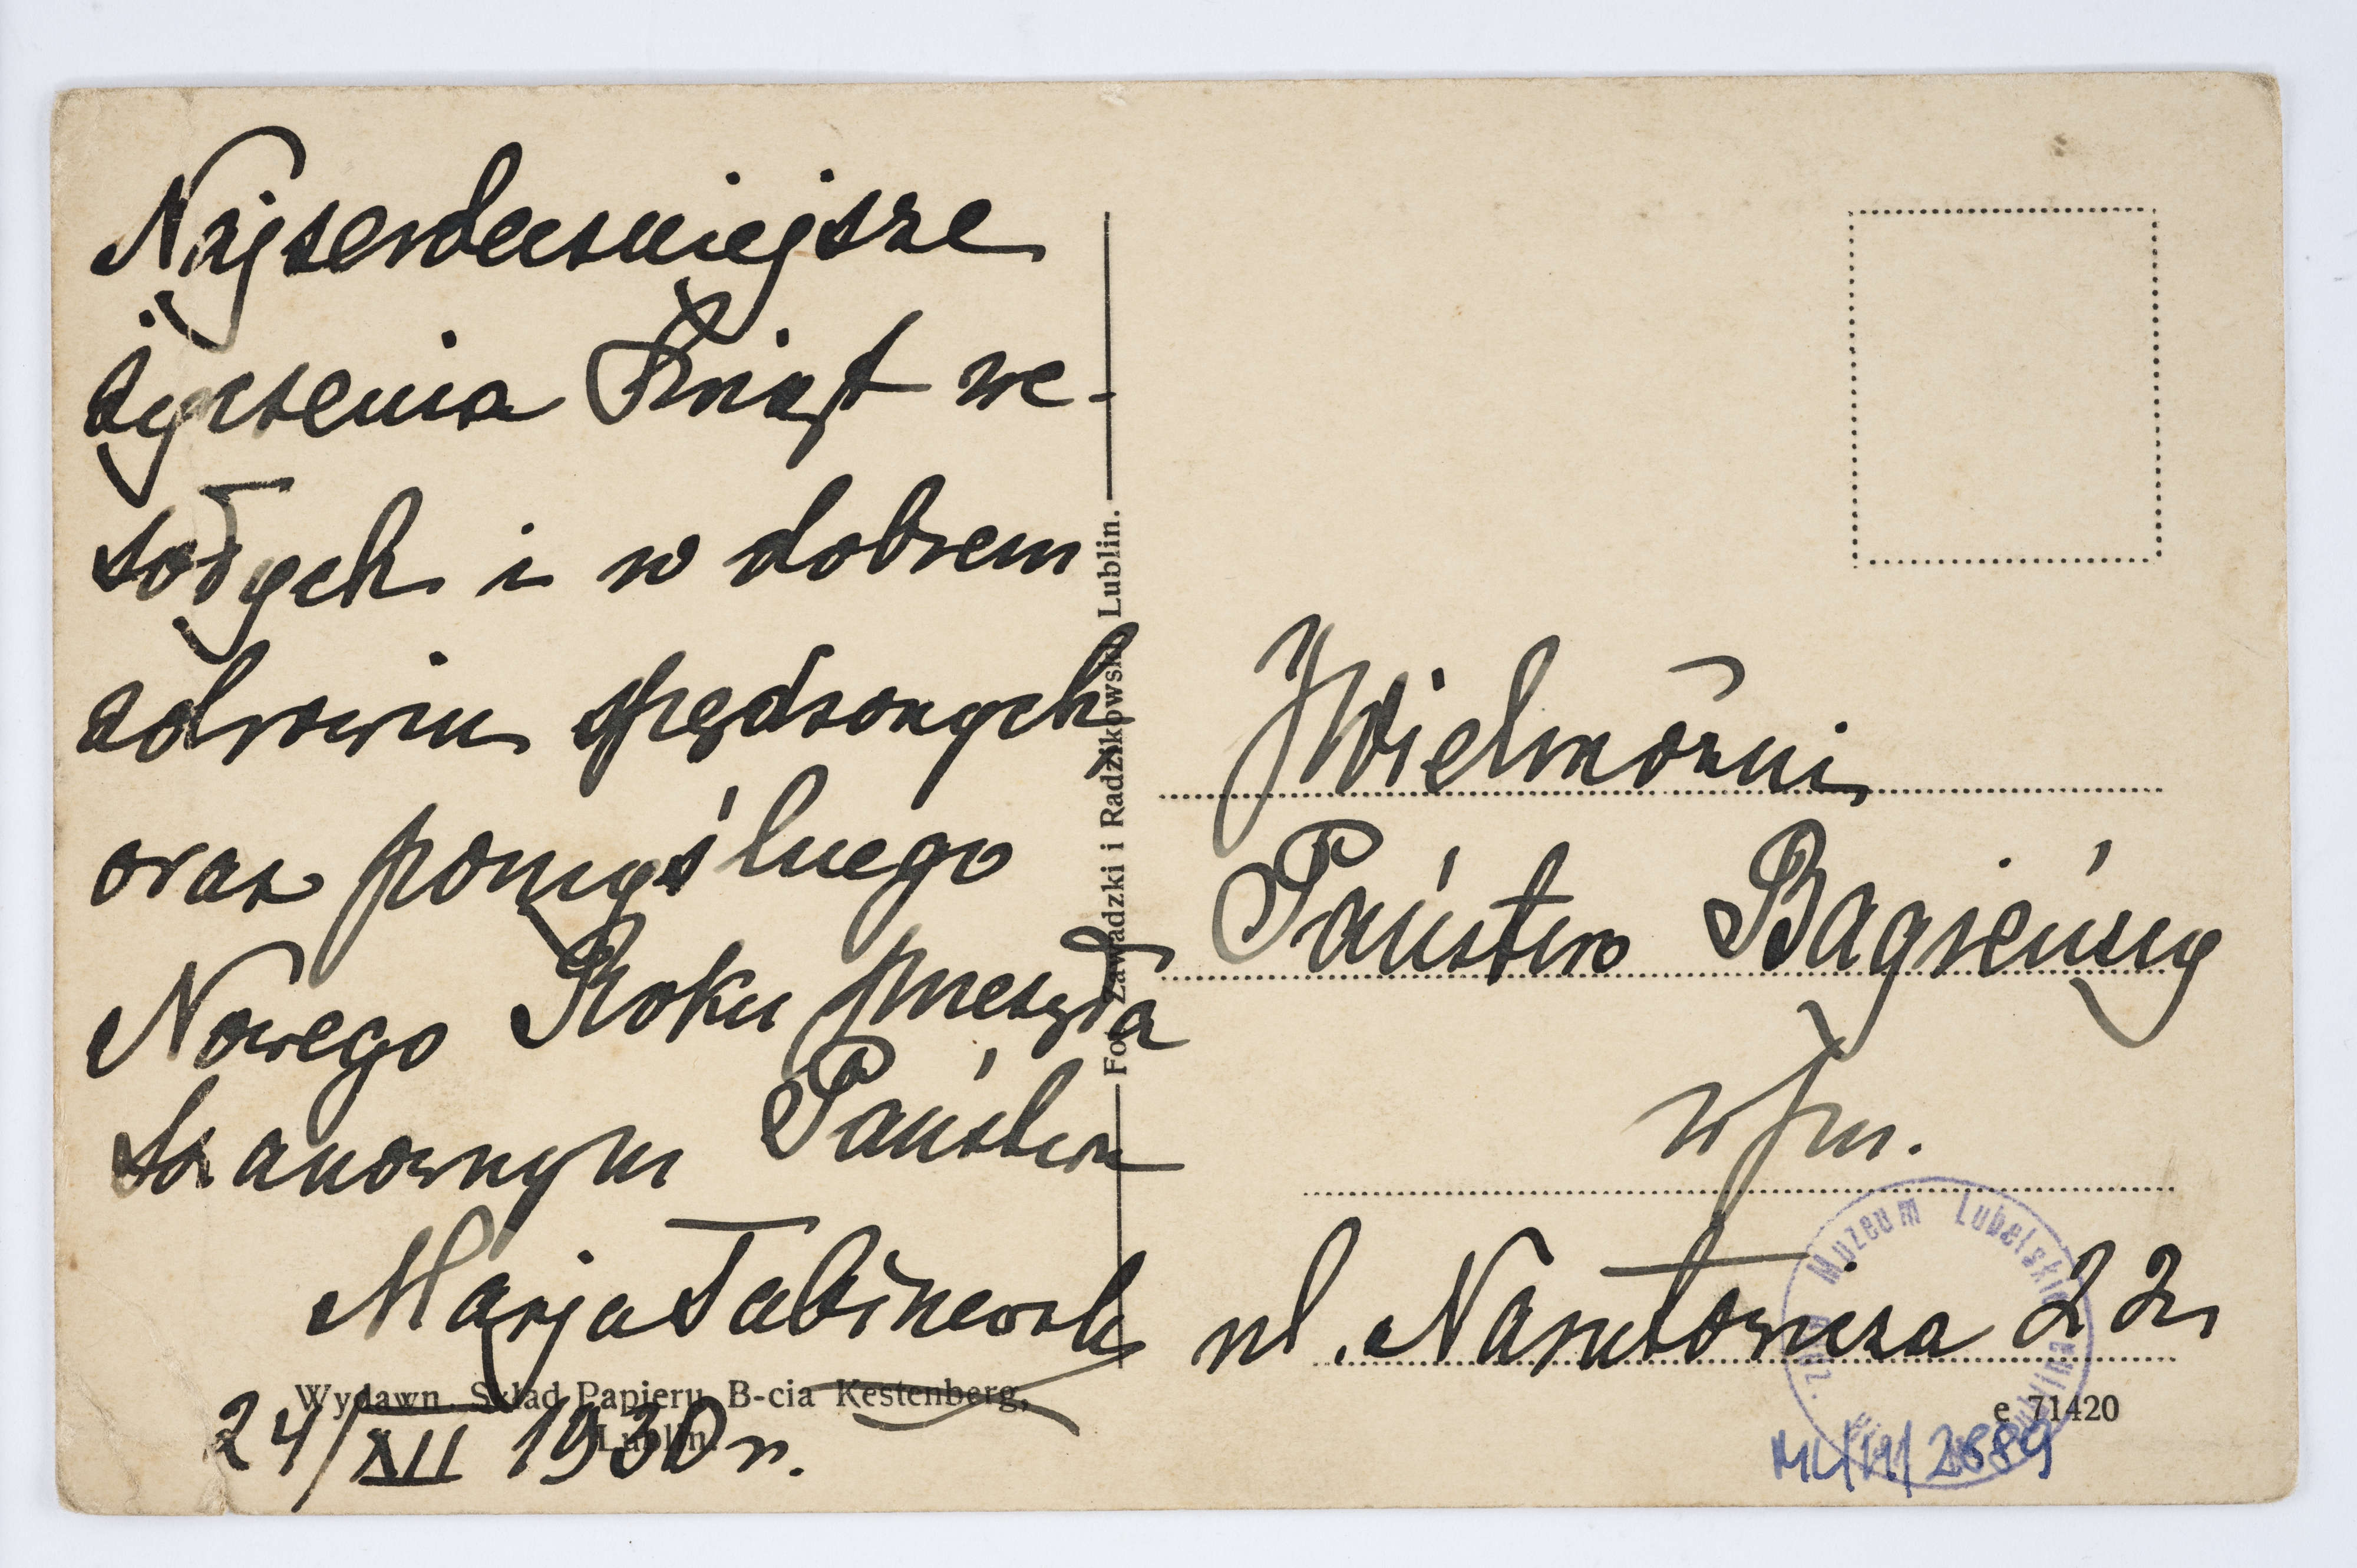 Najserdeczniejsze
życzenia Świąt we-
sołych i w dobrem
zdrowiu spędzonych
oraz pomyślnego
Nowego Roku przesyła
Szanownym Państwu
Marja
24/XII 1930 r.
Wydawn. Skład Papieru B-cia Kestenberg,
Lublin.
Fot. Zawadzki i Radzikowski, Lublin.
JWielmożni
Państwo Bagieńscy
w/m.
ul. Narutowicza 22
Muzeum Lubelskie
e 71420
ML/H/2889